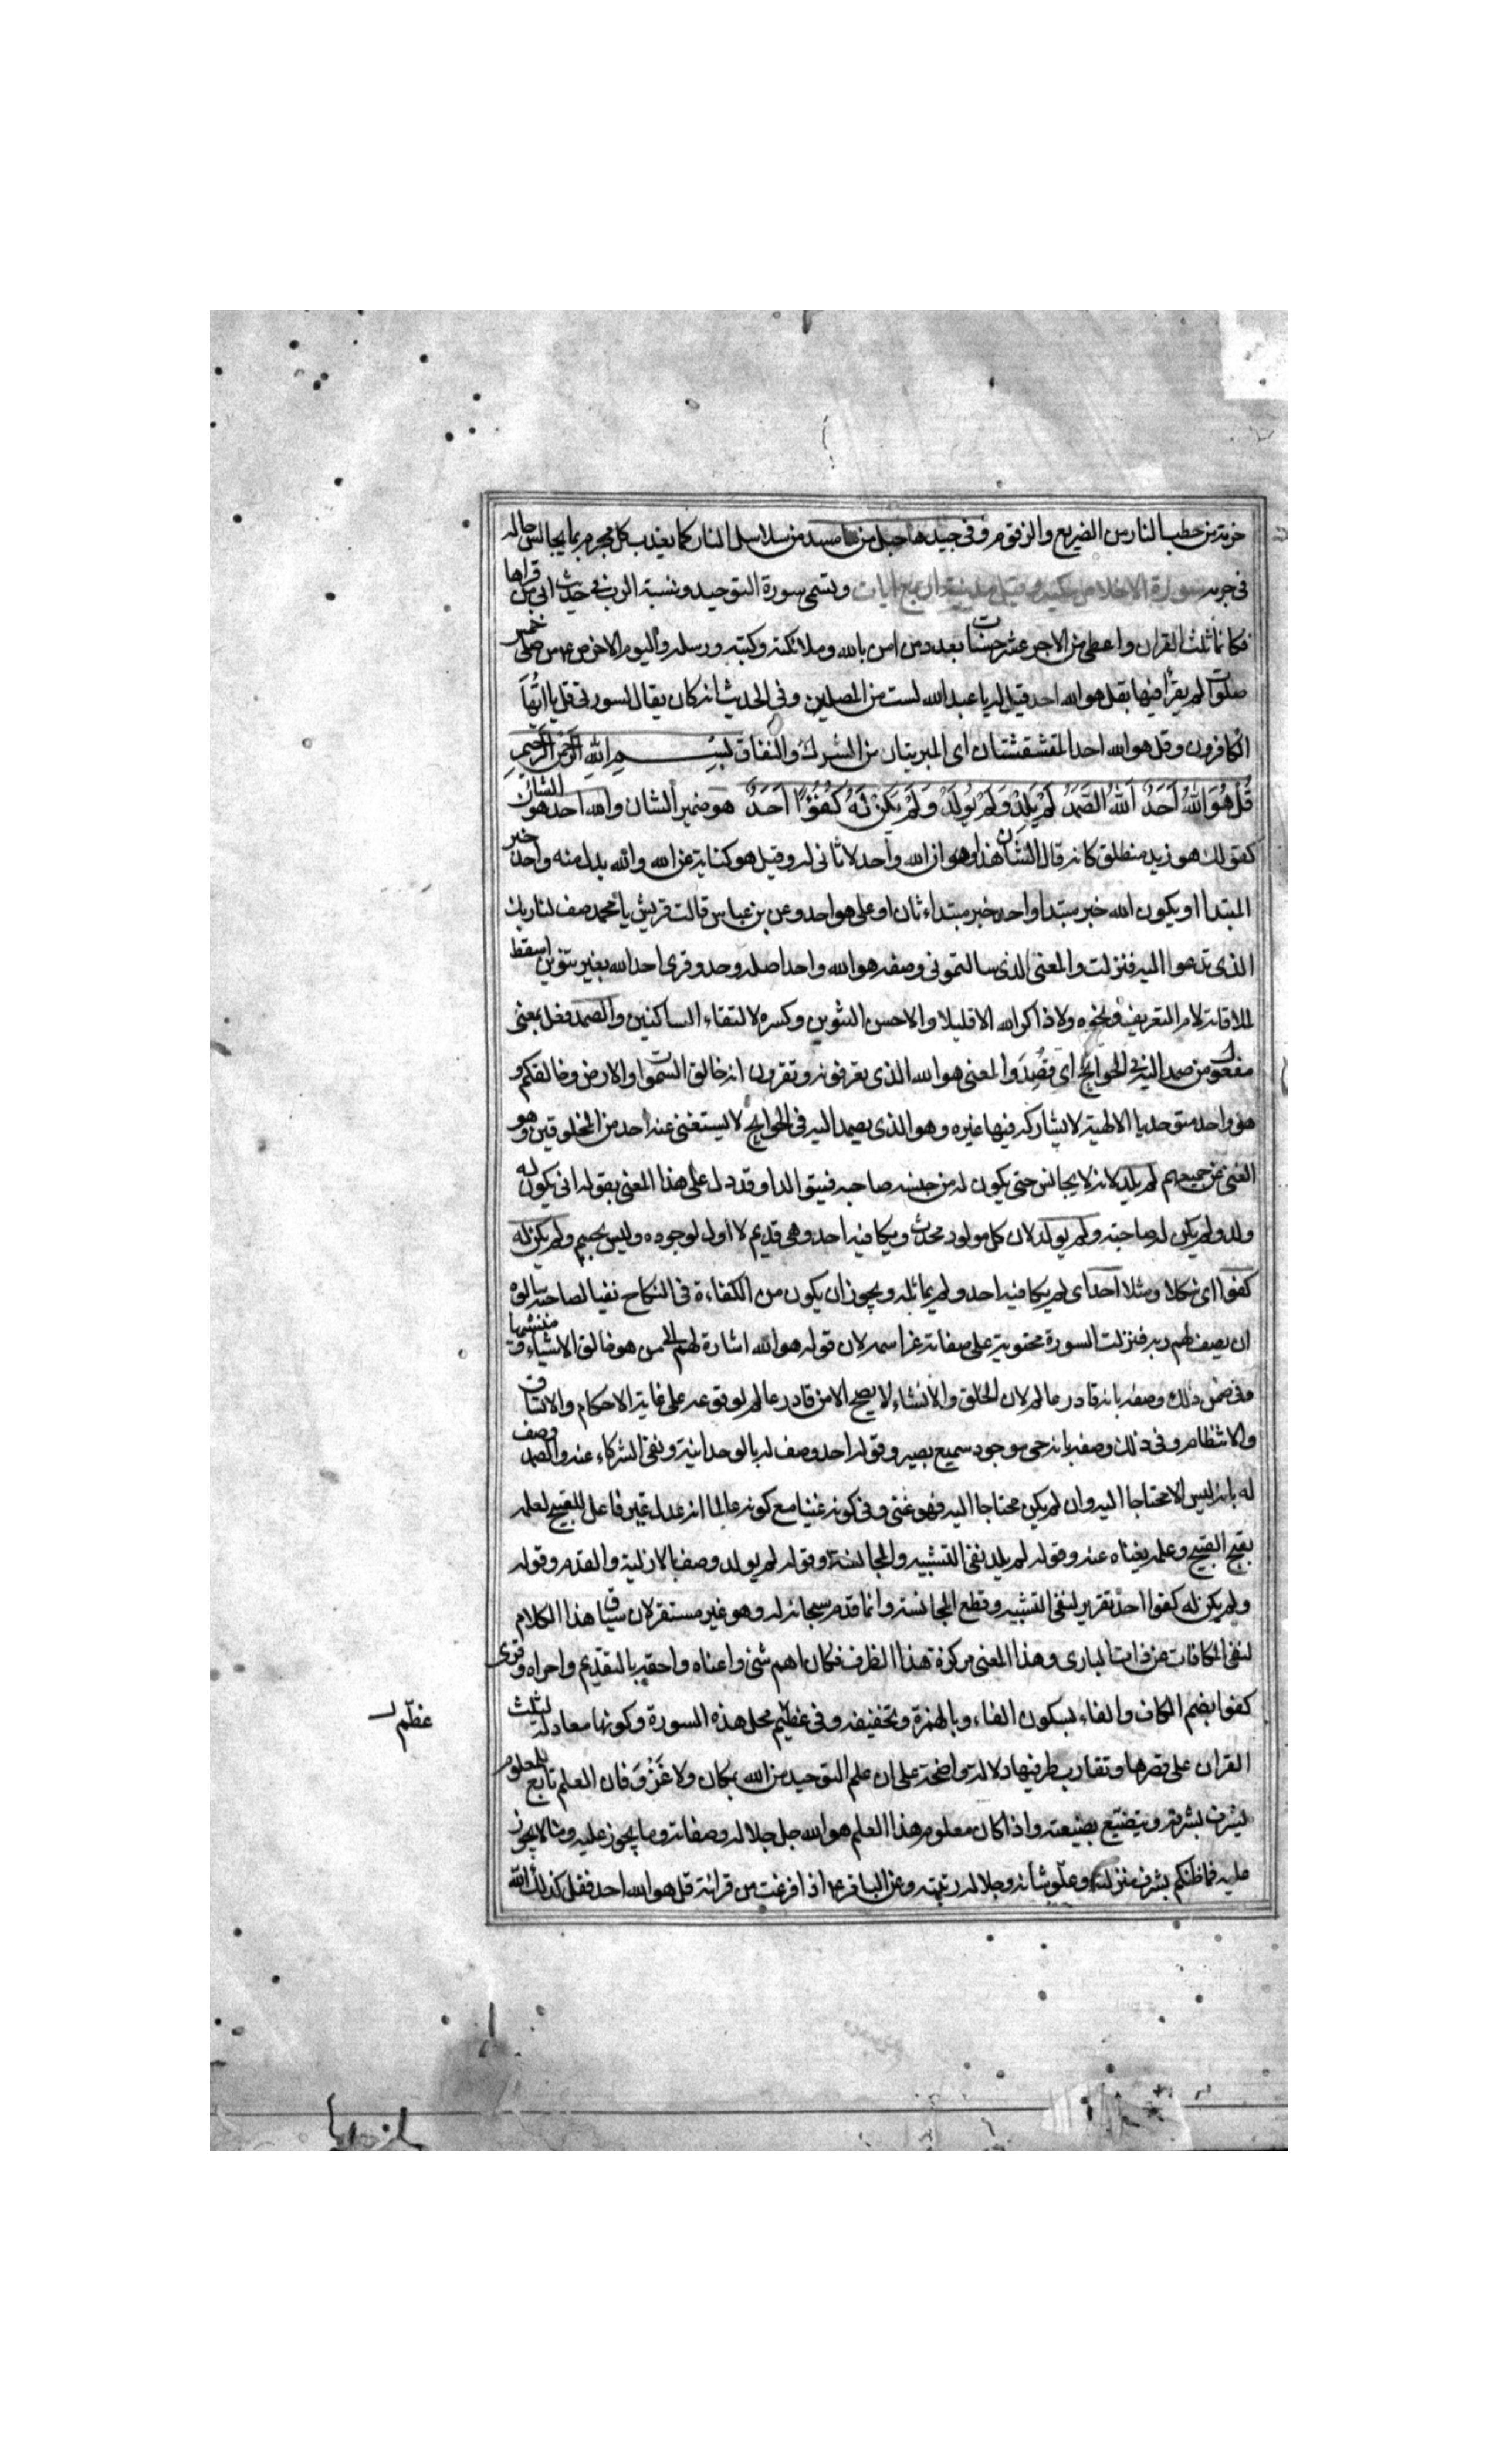 حزمة من حطب النار من الضريع والزقوم وفى جيدها حبل من ما مسد من سلاسل النار كما يعذب كل مجرم بما يجانس حاله
فى جرمه سورة الاخلاص مكية وقيل مدنية اربع ايات وتسمى سورة التوحيد ونسبة الرب فى حديث ابى من قراها
فكانما ثلث القران واعطى من الاجر عشر حسنات بعدد من امن بالله وملائكته وكتبه ورسله واليوم الاخر ص ع من صلى خمس
صلوات لم يقرأ فيها بقل هو الله احد قيل له يا عبد الله لست من المصلين وفى الحديث انه كان يقال لسورتى قل يا ايها
الكافرون وقل هو الله احد المقشقشتان اى المبريتان من الشرك والنفاق بسم الله الرحمن الرحيم
قُلْ هُوَ اللهُ اَحَدٌ اَللهُ الصَّمَدُ لَمْ يَلِدْ وَلَمْ يُولَدْ وَلَمْ يَكُنْ لَهُ كُفُوًا اَحَدٌ هو ضمير الشان والله احد هو الشان
كقولك هو زيد منطلق كانه قال الشان هذا وهو ان الله واحد لا ثانى له وقيل هو كناية عن الله والله بدل منه واحد خبر
المبتدا او يكون الله خبر مبتدا واحد خبر مبتداء ثان او على هو احد وعن بن عباس قالت قريش يا محمد صف لنا ربك
الذى تدعوا اليه فنزلت والمعنى الذى سالتمونى وصفه هو الله واحد اصله وحد وقرى احد الله بغير تنوين اسقط
لملاقاته لام التعريف ونحوه ولا ذاكر الله الا قليلا والاحسن التنوين وكسره لالتقاء الساكنين والصمد فعل بمعنى
مفعول من صمد اليه فى الحوايج اى قُصِدَ والمعنى هو الله الذى تعرفونه وتقرون انه خالق السموات والارض وخالقكم و
هو واحد متوحد بالالهية لا يشاركه فيها غيره وهو الذى يصمد اليه فى الحوايج لا يستغنى عنه احد من المخلوقين وهو
الغنى عن جميعهم لم يلد لانه لا يجانس حتى يكون له من جنسه صاحبه فيتوالدا وقد دل على هذا المعنى بقوله انى يكون له
ولد ولم يكن له صاحبة ولم يولد لان كل مولود محدث ويكافيه احد وهى قديم لا اول لوجوده وليس بجسم ولم يكن له
كفوا اى شكلا ومثلا احد اى لم يكافيه احد ولم يماثله ويجوز ان يكون من الكفاءة فى النكاح نفيا لصاحبه سالوه
ان يصف لهم ربه فنزلت السورة محتوية على صفاته عز اسمه لان قوله هو الله اشارة لهم الى من هو خالق الاشياء و منشيها
وفى ضمن ذلك وصفه بانه قادر عالم لان الخلق والانشاء لا يصح الا من قادر عالم لوقوعه على غاية الاحكام والاتساق
والانتظام وفى ذلك وصفه بانه حى موجود سميع بصير وقوله احد وصف له بالوحدانية ونفى الشركاء عنه والصمد وصف
له بانه ليس الا محتاجا اليه وان لم يكن محتاجا اليه فهو غنى وفى كونه غنيا مع كونه عالما انه عدل غير فاعل للقبيح لعلمه
بقبح القبيح وعلمه بغناه عنه وقوله لم يلد نفى التشبيه والمجانسة وقوله لم يولد وصف بالازلية والقدم وقوله
ولم يكن له كفوا احد تقرير لنفى التشبيه وقطع المجانسة وانما قدم سبحانه له وهو غير مستقر لان سياق هذا الكلام
لنفى المكافات عن ذات البارى وهذا المعنى مركزة هذا الظرف فكان اهم شئ واعناه واحقه بالتقديم واحراه وقرى
كفوا بضم الكاف والفاء بسكون الفاء وبالهمزة وتخفيفه وفى عظيم محل هذه السورة وكونها معادلة لثلث
عظّم
القران على قصرها وتقارب طرفيها دلالة واضحة على ان علم التوحيد من الله بمكان ولا غَرْوَ فان العلم تابع للمعلوم
يشرف بشرفه ويتضيّع بضيعته واذا كان معلوم هذا العلم هو الله جل جلاله وصفاته وما يجوز عليه وما لا يجوز
عليه فما ظنكم بشرف منزلته وعلّو شانه وجلاله رتبته وعن الباقر ع اذا فرغت من قرائة قل هو الله احد فقل كذلك الله